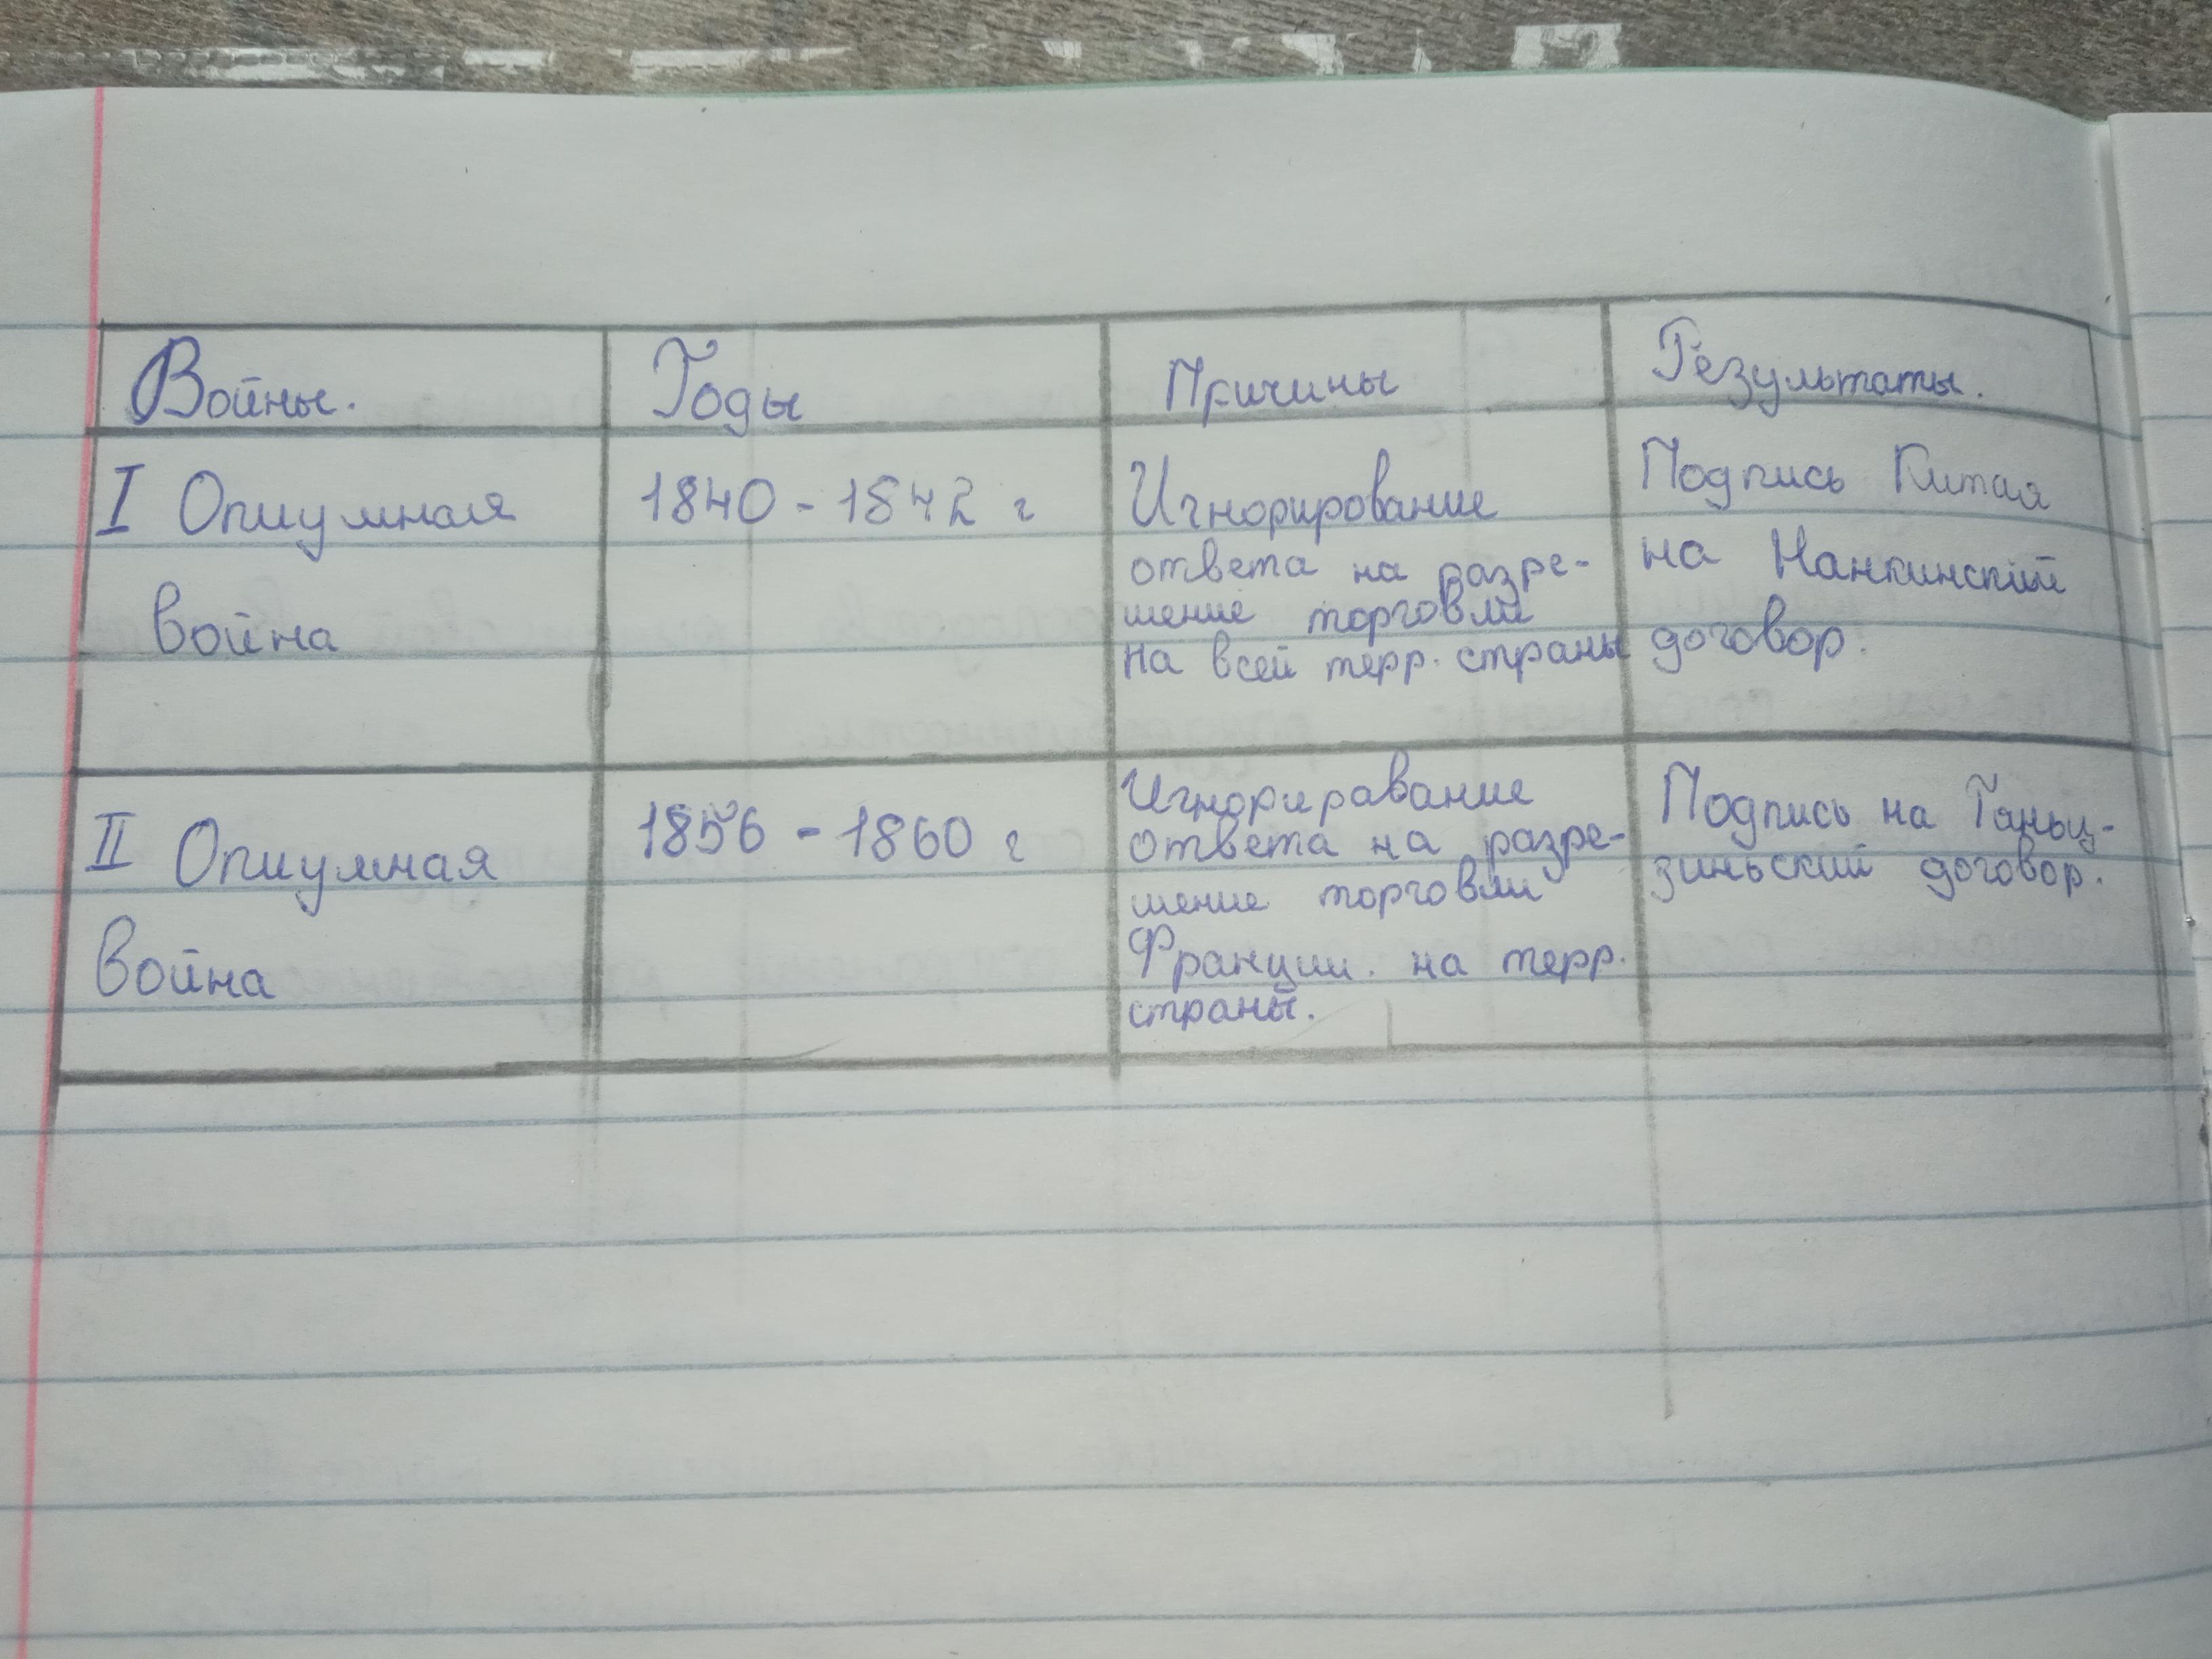 Войны. Годы Причины Результаты.
I Опиумная
война
1840 - 1842 г
Игнорирование
ответа на разре-
шение торговли
на всей терр. страны
Подпись Китая
на Нанкинский
договор.
II Опиумная
война
1856 - 1860 г
Игнорирование
ответа на разре-
шение торговли
Франции. на терр.
страны.
Подпись на Таньц-
зиньский договор.